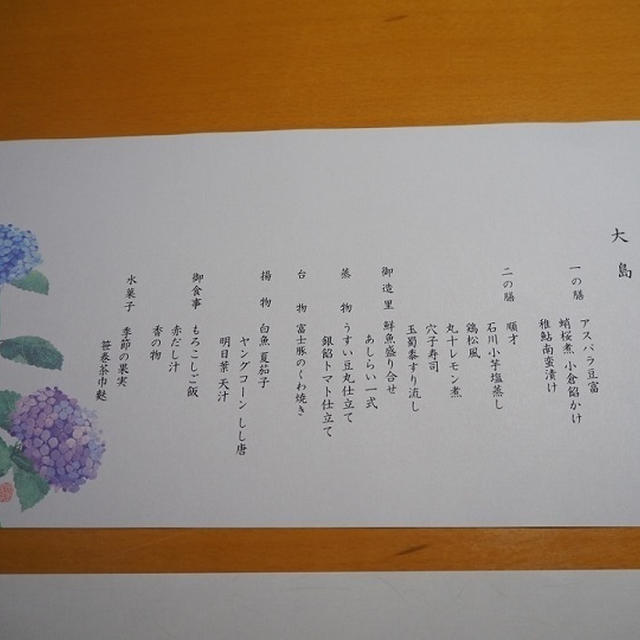 大島
一の膳 アスパラ豆富
蛸桜煮 小倉餡かけ
稚鮎南蛮漬け
二の膳 順才
石川小芋塩蒸し
鶏松風
丸十レモン煮
穴子寿司
玉蜀黍すり流し
御造里 鮮魚盛り合せ
あしらい一式
蒸物 うすい豆丸仕立て
銀餡トマト仕立て
台物 富士豚のくわ焼き
揚物 白魚 夏茄子
ヤングコーン しし唐
明日葉 天汁
御食事 もろこしご飯
赤だし汁
香の物
水菓子 季節の果実
笹巻茶巾麩